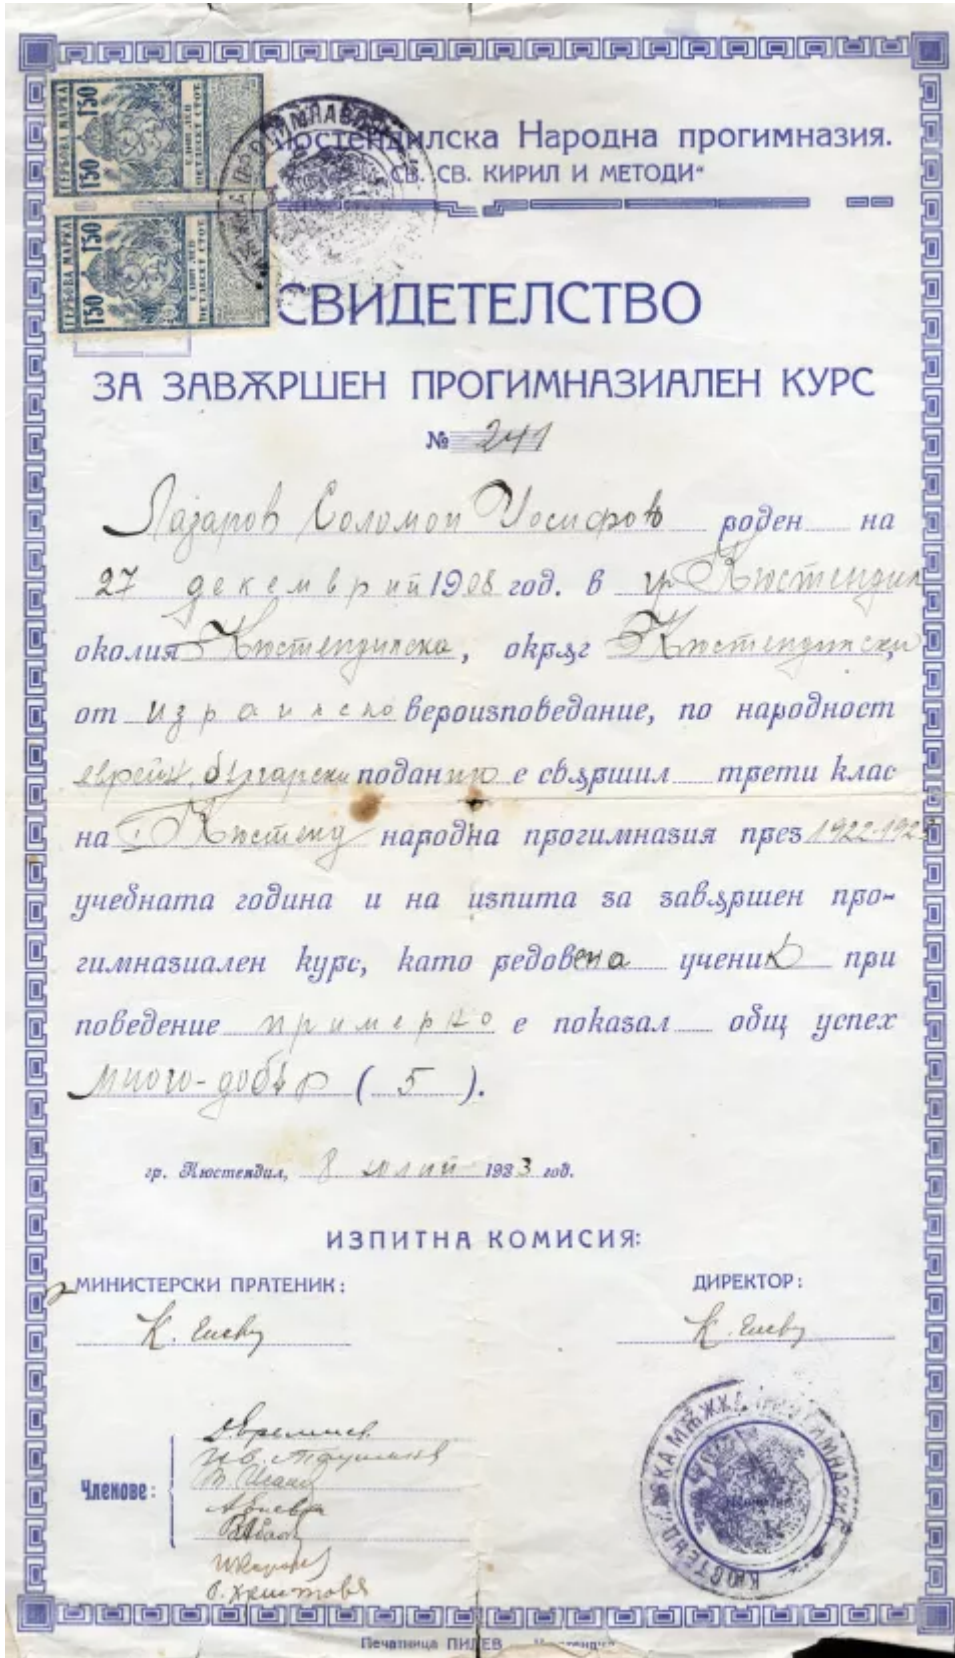 ГЕРБОВА МАРКА
1·50 1·50
ЕДИН ЛЕВ
ПЕТДЕСЕТ СТОТ.
ГЕРБОВА МАРКА
1·50 1·50
ЕДИН ЛЕВ
ПЕТДЕСЕТ СТОТ.
Кюстендилска Народна прогимназия.
СВ. СВ. КИРИЛ И МЕТОДИ“
СВИДЕТЕЛСТВО
ЗА ЗАВѪРШЕН ПРОГИМНАЗИАЛЕН КУРС
№ 241
Лазаров Соломон Йосифов роден на
27 декемврий 1908 год. в гр. Кюстендил
околия Кюстендилска, окрѫг Кюстендилски,
от израилско вероизповедание, по народност
евреин, бѫлгарски поданик е свѫршил трети клас
на Кюстенд народна прогимназия през 1922-192
учебната година и на изпита за завѫршен про-
гимназиален курс, като редовен ученик при
поведение примерно е показал общ успех
много-добѫр (5).
гр. Кюстендил, 8 юлий 1923 год.
ИЗПИТНА КОМИСИЯ:
МИНИСТЕРСКИ ПРАТЕНИК: ДИРЕКТОР:
К. К.
Членове:
Христова
КЮСТЕНДИЛСКА МѪЖКА ПРОГИМНАЗИЯ
Печатница ПИЛЕВ — Кюстендил